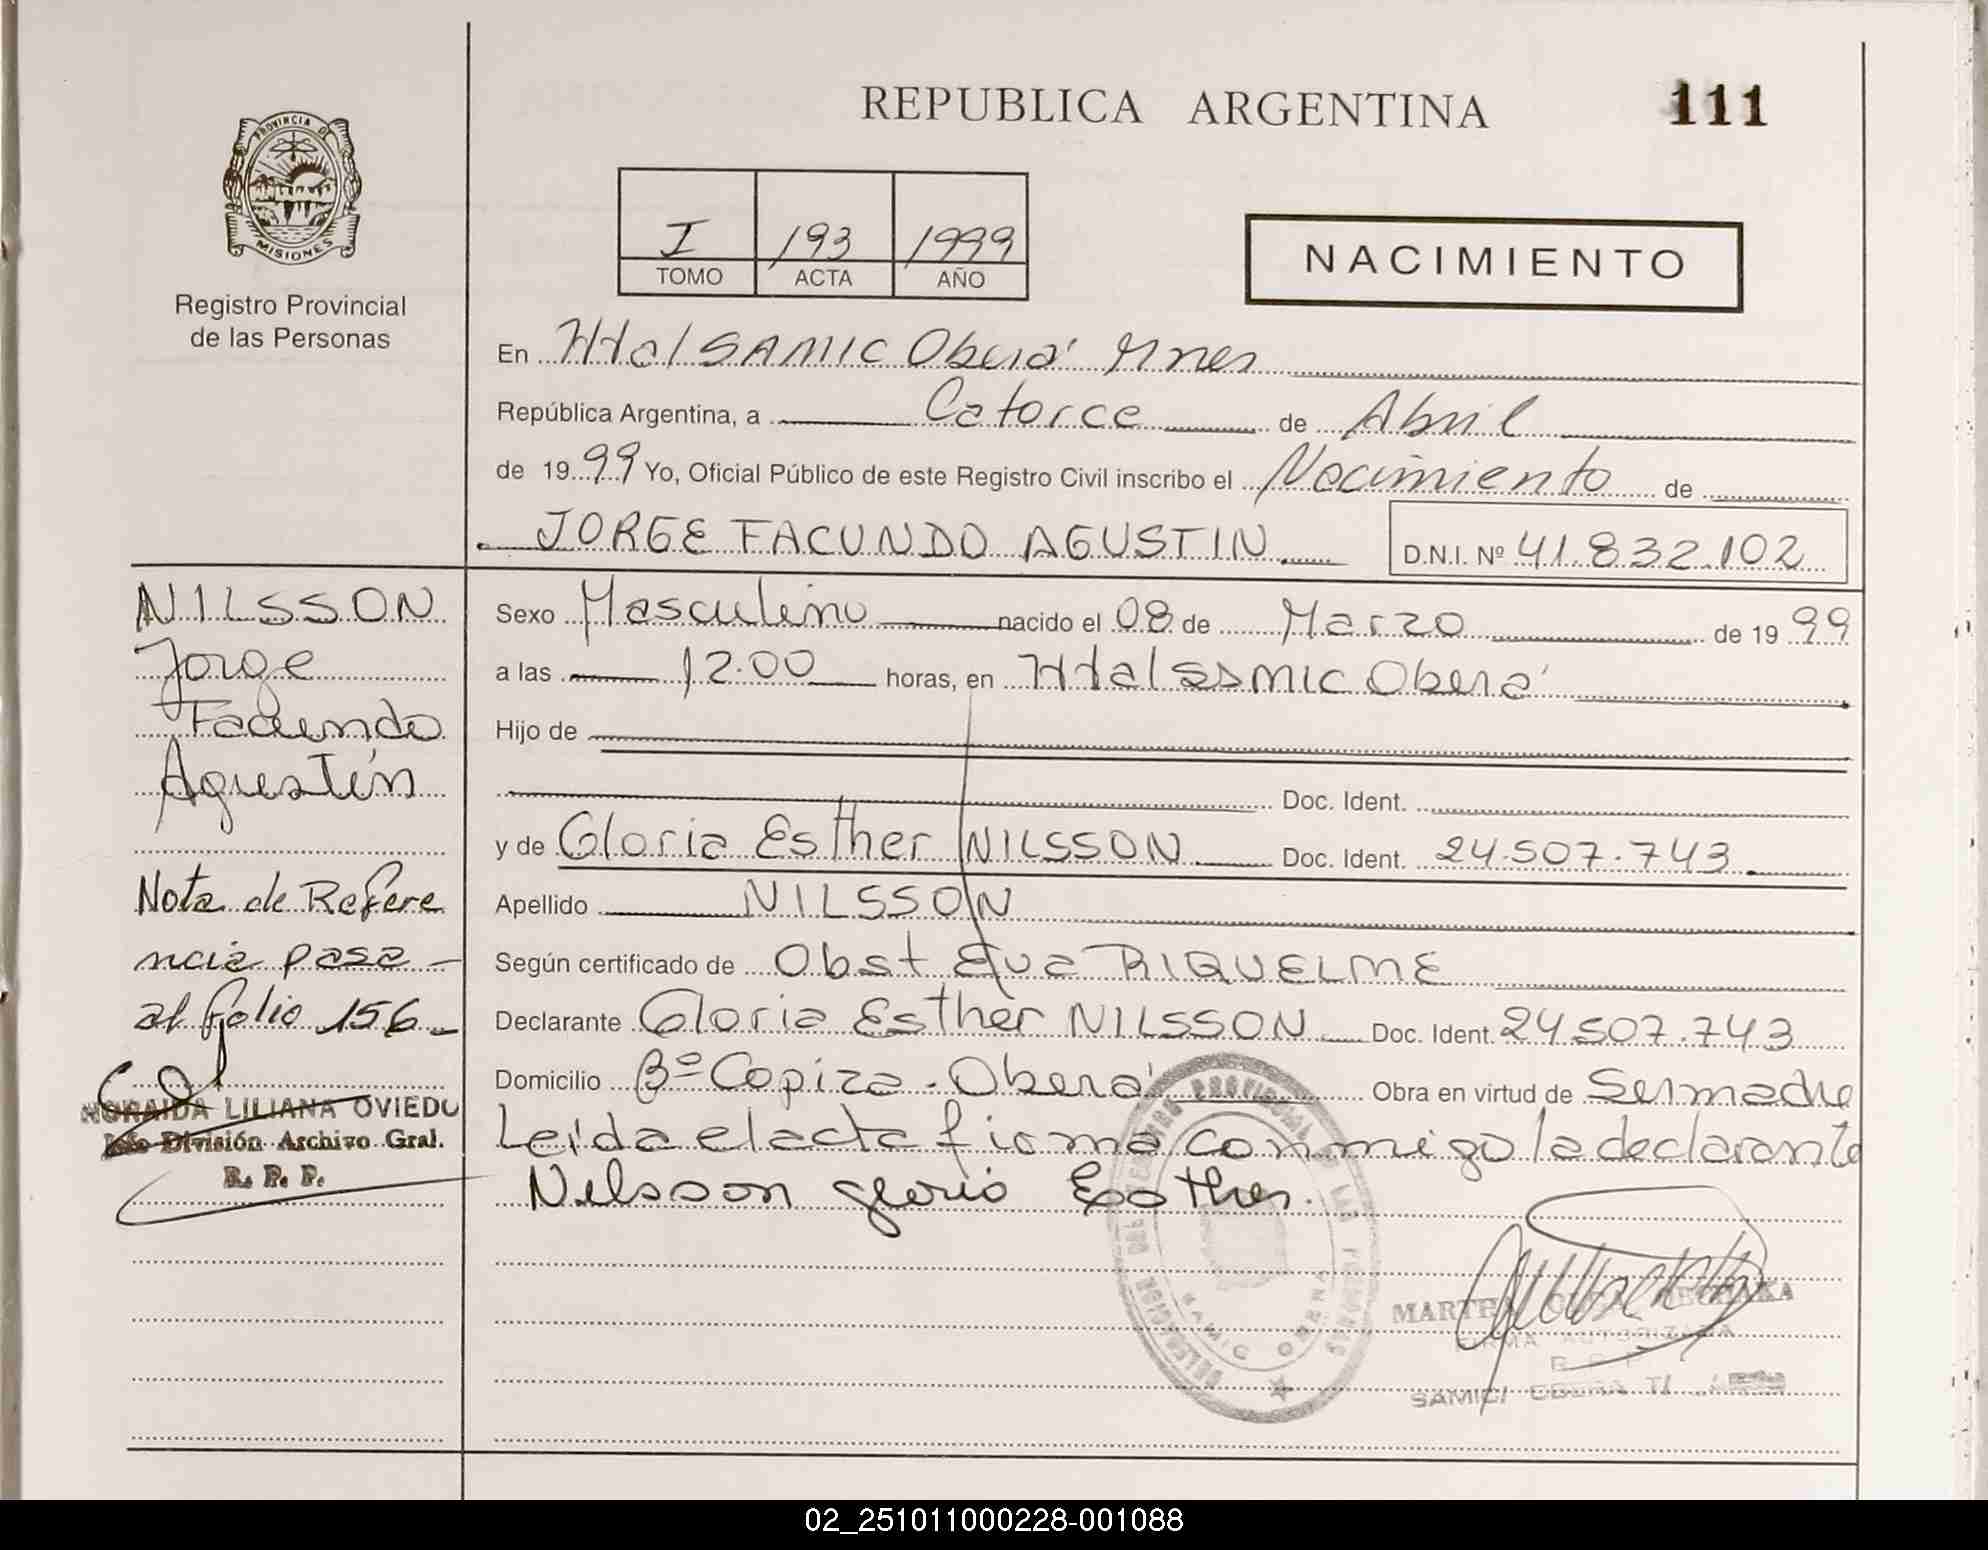 REPUBLICA ARGENTINA
111
PROVINCIA DE
MISIONES
Registro Provincial
de las Personas
I 193 1999
TOMO ACTA AÑO
NACIMIENTO
En Htal SAMIC Oberá Mnes
República Argentina, a Catorce de Abril
de 1999 Yo, Oficial Público de este Registro Civil inscribo el Nacimiento de
JORGE FACUNDO AGUSTIN D.N.I. Nº 41.832.102
NILSSON
Jorge
Facundo
Agustín
Nota de Refere
ncia pasa -
al folio 156 -
NORAIDA LILIANA OVIEDO
Jefe División Archivo Gral.
R. P. P.
Sexo Masculino nacido el 08 de Marzo de 1999
a las 12.00 horas, en Htal SAMIC Oberá
Hijo de
Doc. Ident.
y de Gloria Esther NILSSON Doc. Ident. 24.507.743
Apellido NILSSON
Según certificado de Obst Eva RIQUELME
Declarante Gloria Esther NILSSON Doc. Ident. 24.507.743
Domicilio Bº Copiza - Oberá Obra en virtud de Ser madre
Leída el acta firma conmigo la declarante
Nilsson gloria Esther.
DELEGACION DEL REGISTRO PROVINCIAL DE LAS PERSONAS
SAMIC
MARTHA
FIRMA AUTORIZADA
R P P
SAMIC/ OBERA
02_251011000228-001088